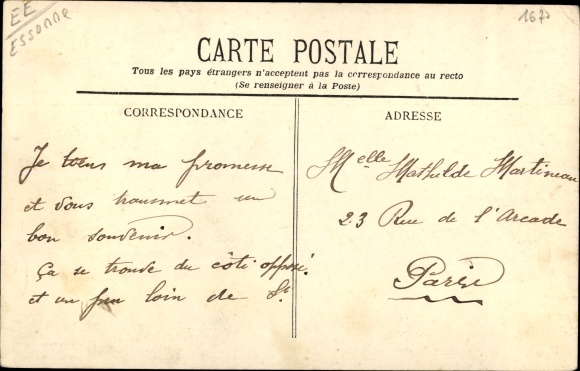 EE
ESSONNE
167
CARTE POSTALE
Tous les pays étrangers n'acceptent pas la correspondance au recto
(Se renseigner à la Poste)
CORRESPONDANCE
Je tiens ma promesse
et vous transmet un
bon souvenir.
Ça se trouve du côté opposé
et un peu loin de St
ADRESSE
Melle Mathilde Martineau
23 Rue de l'Arcade
Paris